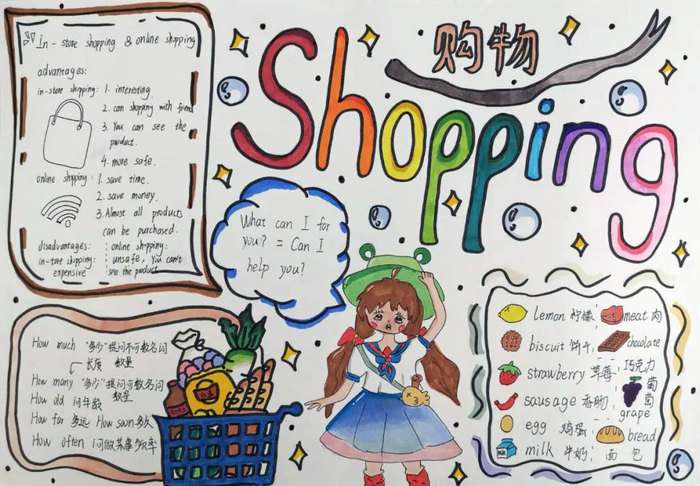 购物
Shopping
In-store shopping & online shopping
advantages:
in-store shopping: 1. interesting
2. can shopping with friend
3. You can see the
product.
4. more safe.
online shopping: 1. save time.
2. save money.
3. Almost all products
can be purchased.
disadvantages: online shopping:
in-store shopping: unsafe, You can't
expensive see the product
What can I for
you? = Can I
help you?
How much "多少"提问不可数名词
数量
How many "多少"提问可数名词
数量
How old 问年数
How far 多远 How soon 多久
How often 问做某事频率
lemon 柠檬; meat 肉
biscuit 饼干; chocolate
strawberry 草莓; 巧克力
sausage 香肠; 葡萄
grape
egg 鸡蛋 bread
milk 牛奶; 面包